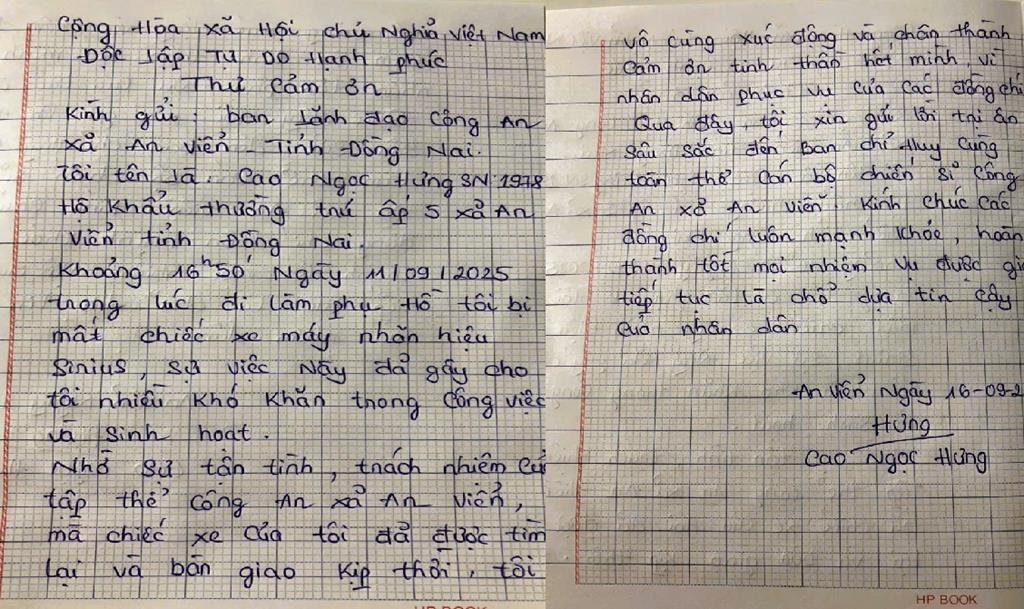 Cộng Hòa xã Hội chủ Nghĩa Việt Nam
Độc Lập Tự Do Hạnh phúc
Thư Cảm ơn
Kính gửi; ban Lãnh đạo Công An
xã An Viễn - Tỉnh Đồng Nai.
Tôi tên Là. Cao Ngọc Hưng SN: 1978
Hộ Khẩu thường trú ấp 5 xã An
Viễn tỉnh Đồng Nai.
Khoảng 16h50' Ngày 11/09/2025
trong lúc đi Làm phụ Hồ tôi bị
mất chiếc xe máy nhãn hiệu
Sirius, Sự việc Này đã gây cho
tôi nhiều Khó Khăn trong Công việc
và Sinh hoạt.
Nhờ Sự tận tình, trách nhiệm Củ
tập thể Công An xã An Viễn,
mà chiếc xe Của tôi đã được tìm
Lại và bàn giao Kịp thời, tôi
vô cùng xúc động và chân thành
Cảm ơn tinh thần hết mình, vì
nhân dân phục vụ Của Các đồng chí
Qua đây, tôi xin gửi Lời tri ân
Sâu Sắc đến Ban chỉ Huy Cùng
toàn thể Cán bộ chiến Sĩ Công
An xã An Viễn. Kính chúc Các
đồng chí Luôn mạnh Khỏe, hoàn
thành tốt mọi nhiệm Vụ được gi
tiếp tục Là chỗ dựa tin Cậy
Của nhân dân
An Viễn Ngày 16-09-2
Hưng
Cao Ngọc Hưng
HP BOOK
HP BOOK